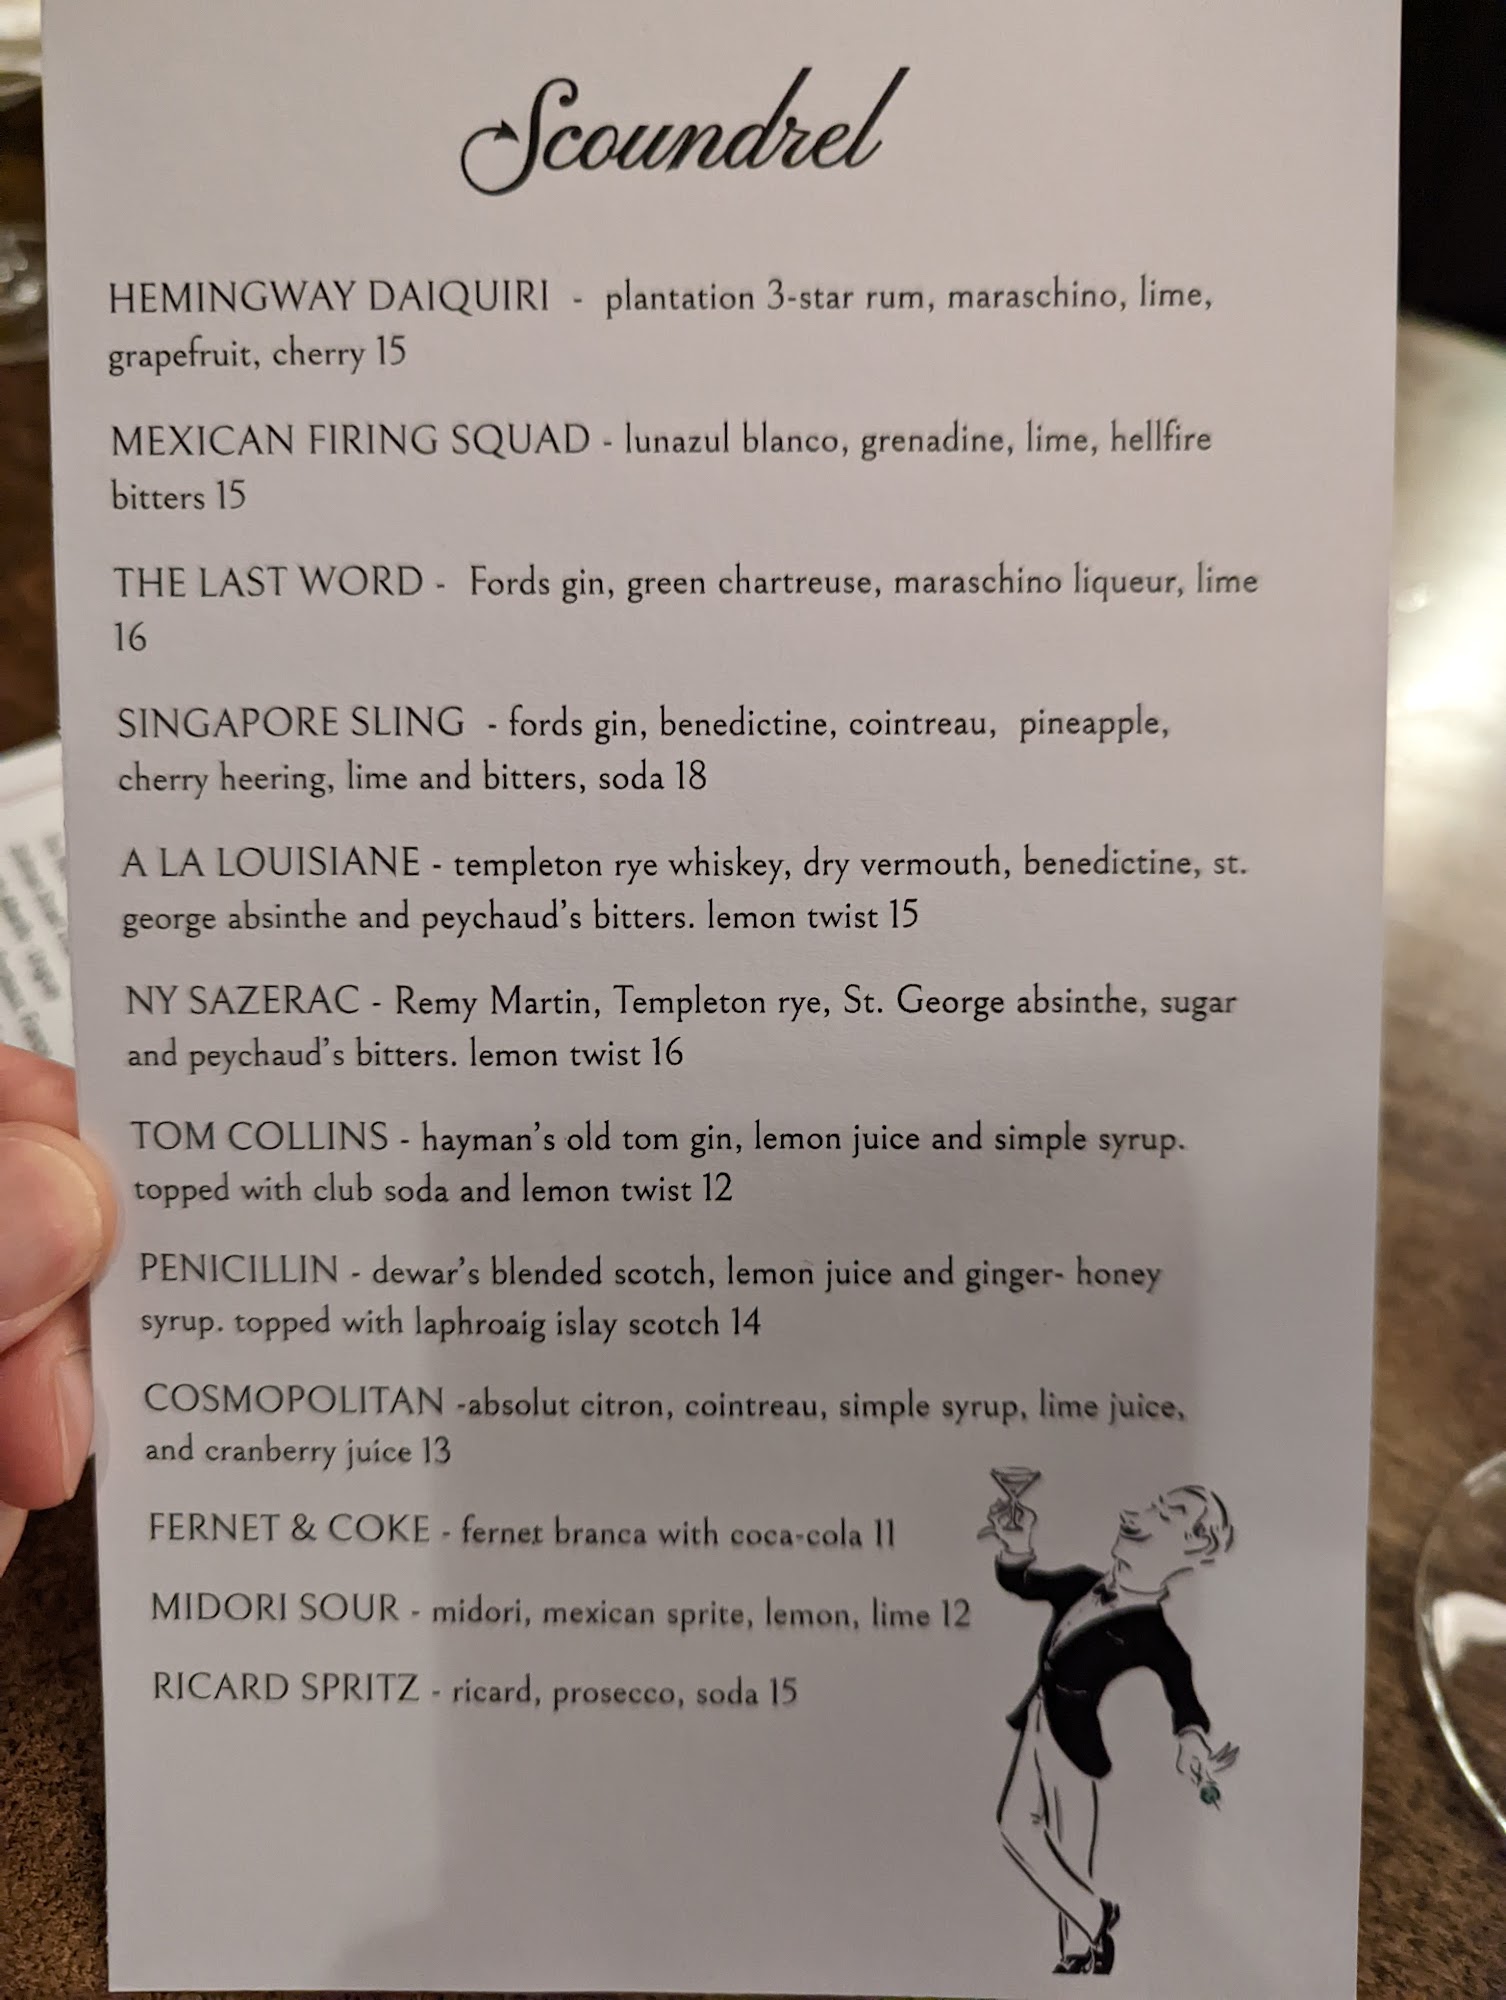 Scoundrel
HEMINGWAY DAIQUIRI - plantation 3-star rum, maraschino, lime,
grapefruit, cherry 15
MEXICAN FIRING SQUAD - lunazul blanco, grenadine, lime, hellfire
bitters 15
THE LAST WORD - Fords gin, green chartreuse, maraschino liqueur, lime
16
SINGAPORE SLING - fords gin, benedictine, cointreau, pineapple,
cherry heering, lime and bitters, soda 18
A LA LOUISIANE - templeton rye whiskey, dry vermouth, benedictine, st.
george absinthe and peychaud's bitters. lemon twist 15
NY SAZERAC - Remy Martin, Templeton rye, St. George absinthe, sugar
and peychaud's bitters. lemon twist 16
TOM COLLINS - hayman's old tom gin, lemon juice and simple syrup.
topped with club soda and lemon twist 12
PENICILLIN - dewar's blended scotch, lemon juice and ginger- honey
syrup. topped with laphroaig islay scotch 14
COSMOPOLITAN -absolut citron, cointreau, simple syrup, lime juice,
and cranberry juice 13
FERNET & COKE - fernet branca with coca-cola 11
MIDORI SOUR - midori, mexican sprite, lemon, lime 12
RICARD SPRITZ - ricard, prosecco, soda 15